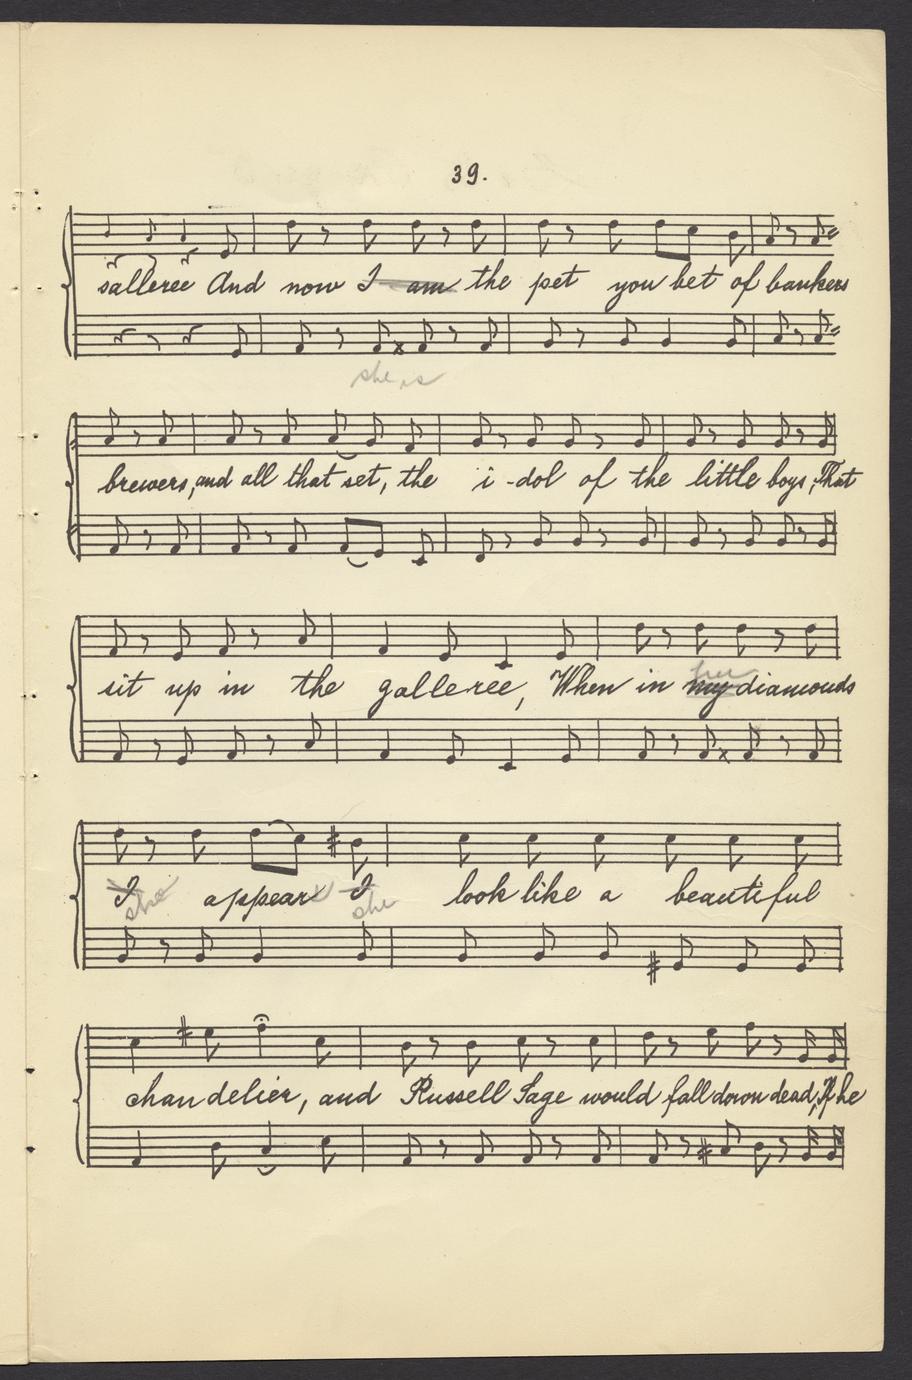 39.
salleree And now I am the pet you bet of bankers
she is
brewers, and all that set, the i-dol of the little boys, That
her
sit up in the galleree, When in my diamonds
I appears I look like a beautiful
she she
chandelier, and Russell Sage would fall down dead, If he